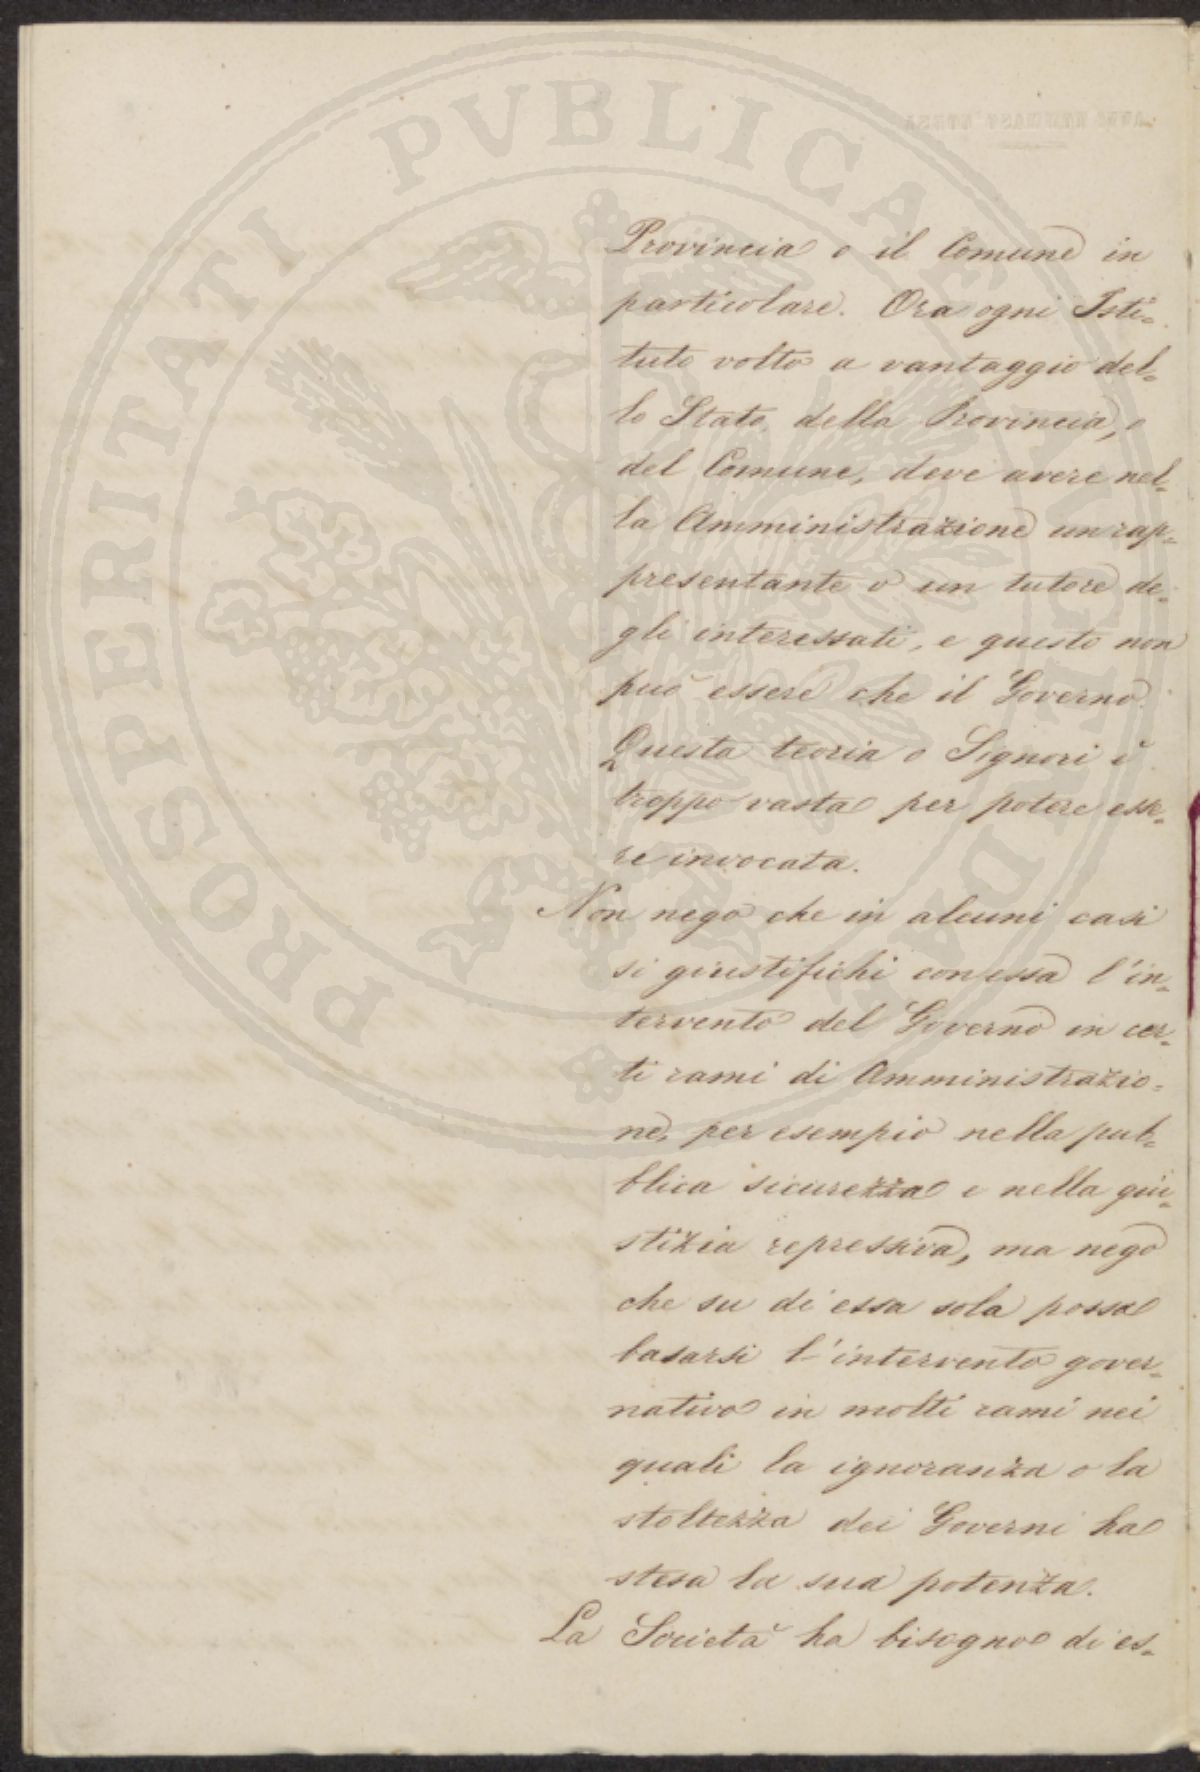 PROSPERITATI PVBLICAE AVGENDAE
Provincia o il Comune in
particolare. Ora ogni Isti=
tuto volto a vantaggio del=
lo Stato, della Provincia, o
del Comune, deve avere nel=
la Amministrazione un rap=
presentante o un tutore de=
gli interessati, e questo non
può essere che il Governo.
Questa teoria o Signori è
troppo vasta per potere esse=
re invocata.
Non nego che in alcuni casi
si giustifichi con essa l'in=
tervento del Governo in cer=
ti rami di Amministrazio=
ne, per esempio nella pub=
blica sicurezza e nella giu=
stizia repressiva, ma nego
che su di essa sola possa
basarsi l'intervento gover=
nativo in molti rami nei
quali la ignoranza o la
stoltezza dei Governi ha
stesa la sua potenza.
La Società ha bisogno di es=